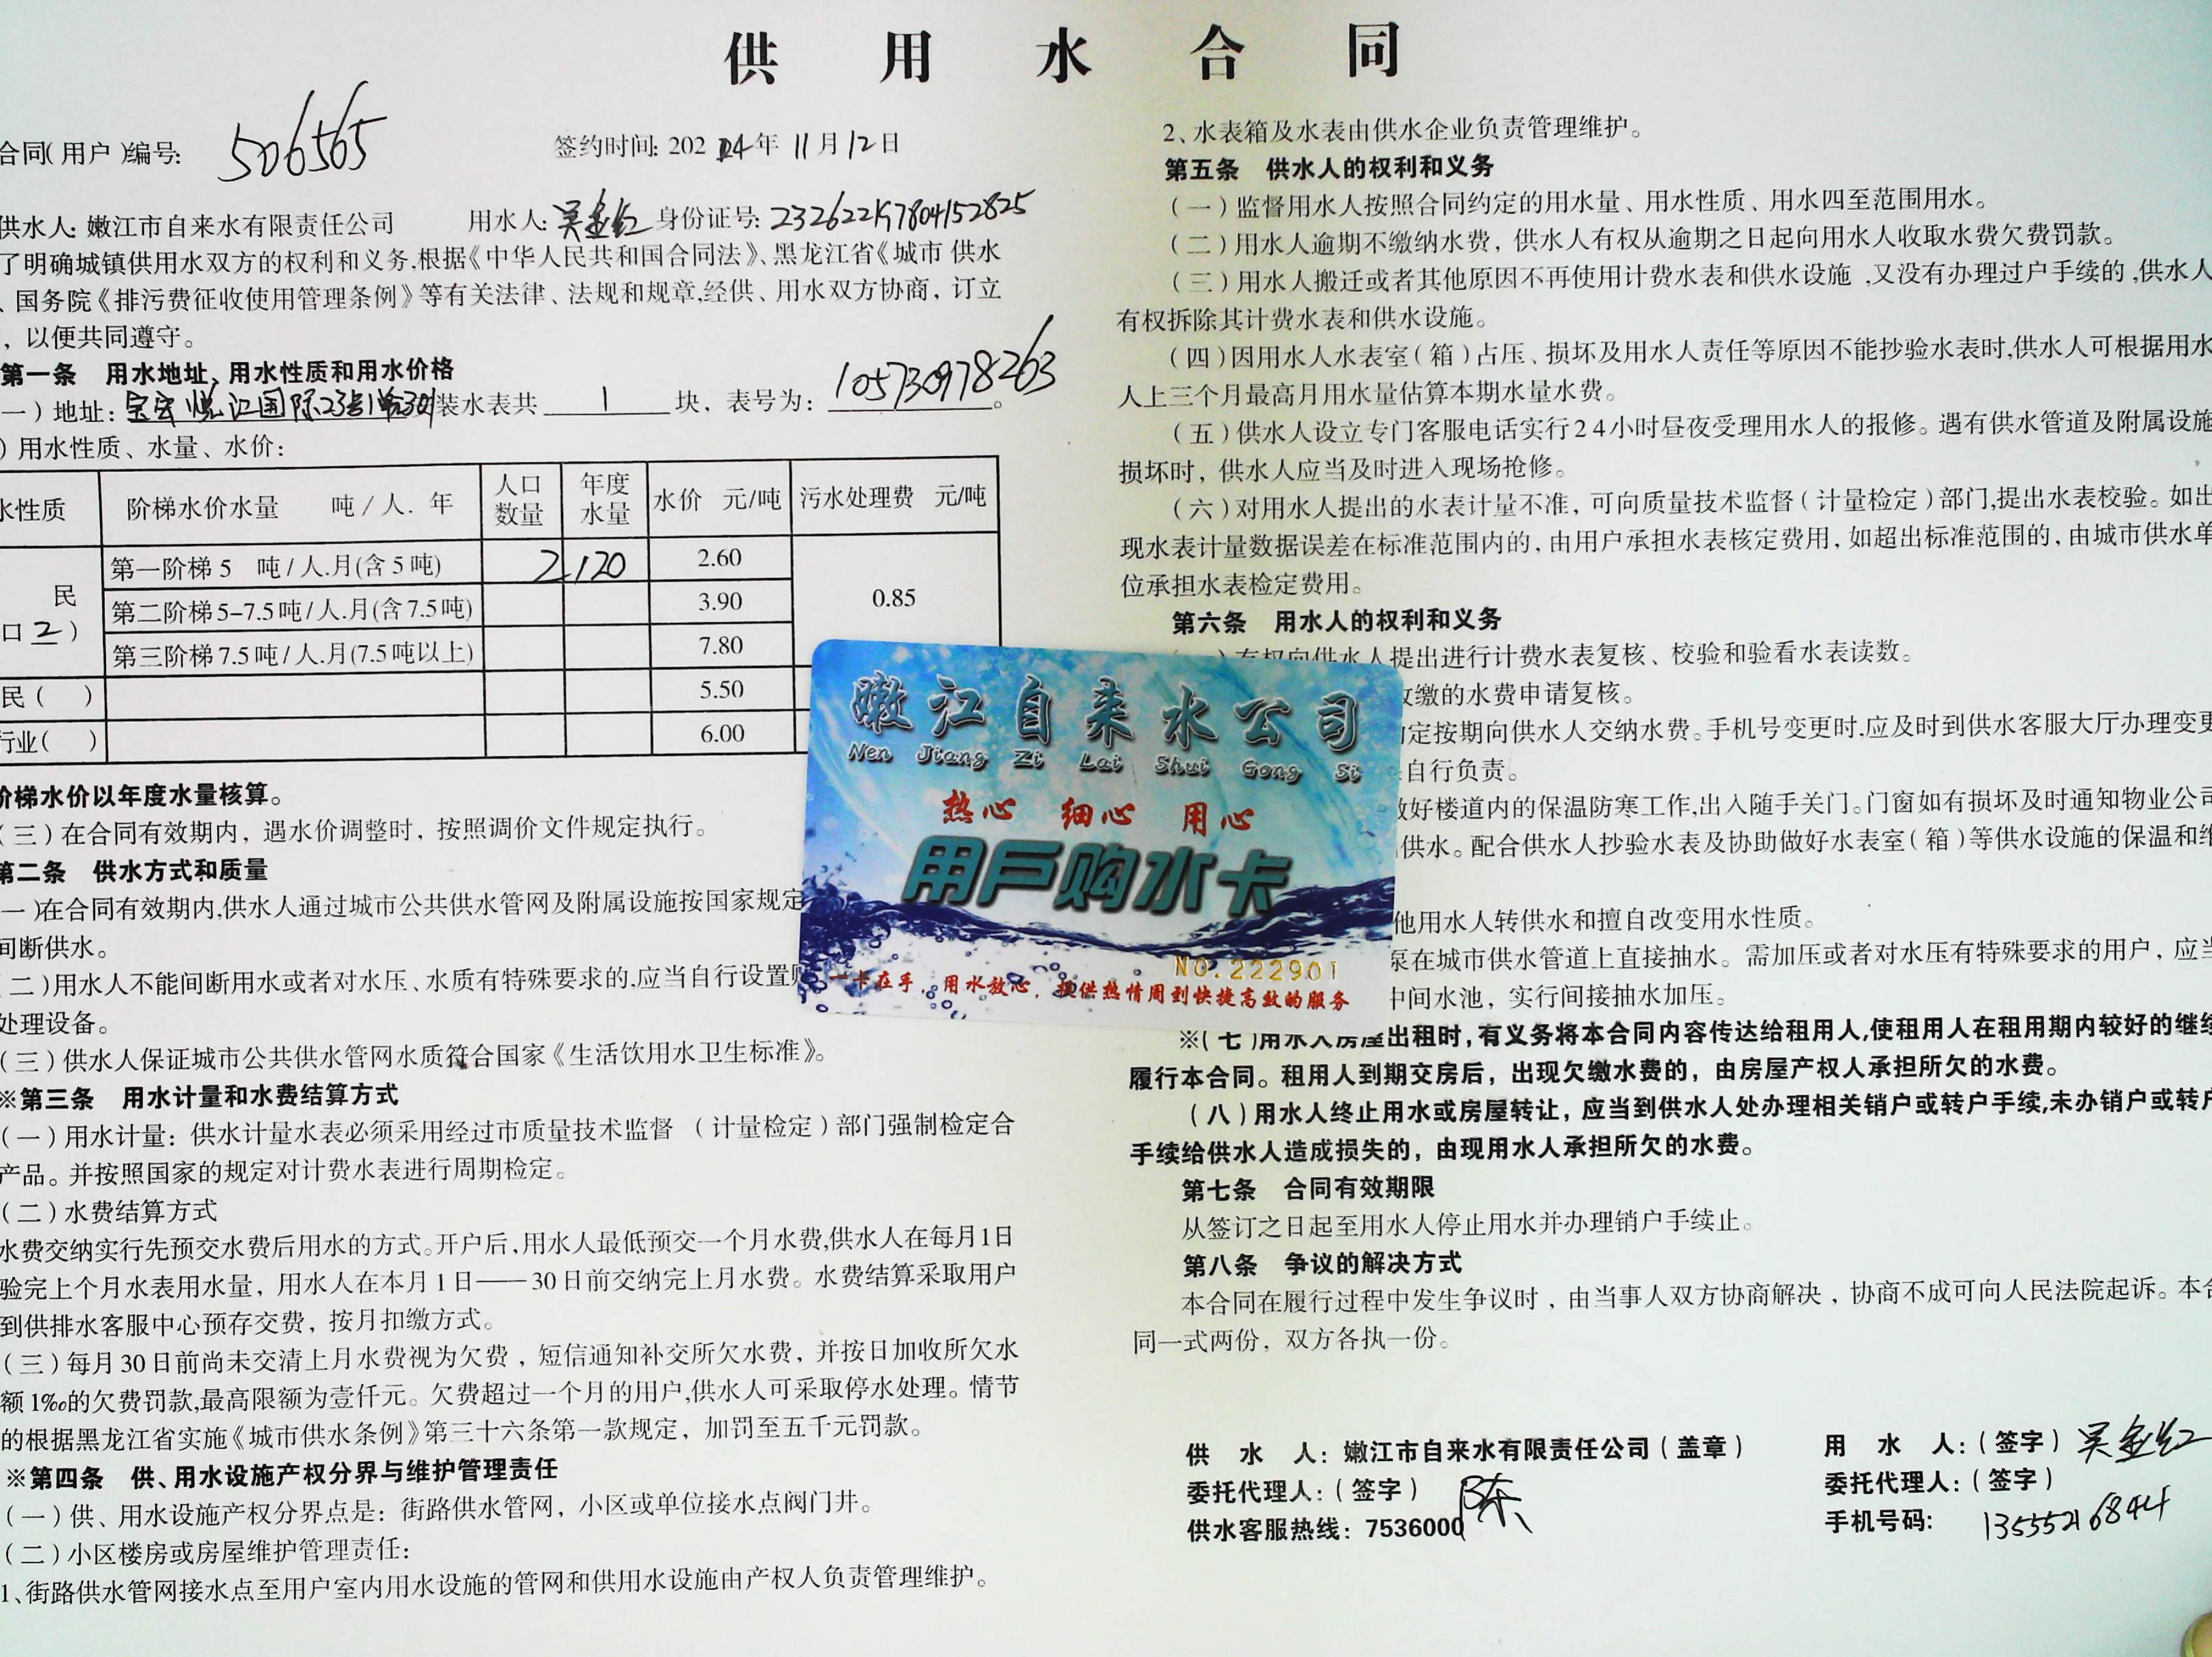 供用水合同
合同(用户)编号: 506565
签约时间: 2024年11月12日
供水人: 嫩江市自来水有限责任公司 用水人: 吴金红 身份证号:
了明确城镇供用水双方的权利和义务,根据《中华人民共和国合同法》、黑龙江省《城市 供水
、国务院《排污费征收使用管理条例》等有关法律、法规和规章,经供、用水双方协商, 订立
, 以便共同遵守。
第一条 用水地址、用水性质和用水价格
一)地址: 悦江国际23号1单301装水表共 1 块, 表号为: 105730978263。
)用水性质、水量、水价:
水性质 阶梯水价水量 吨/人.年 人口数量 年度水量 水价 元/吨 污水处理费 元/吨
民
口2)
第一阶梯5 吨/人.月(含5吨) 2 120 2.60
第二阶梯5-7.5吨/人.月(含7.5吨) 3.90 0.85
第三阶梯7.5吨/人.月(7.5吨以上) 7.80
民( ) 5.50
行业( ) 6.00
阶梯水价以年度水量核算。
(三)在合同有效期内, 遇水价调整时, 按照调价文件规定执行。
第二条 供水方式和质量
一)在合同有效期内,供水人通过城市公共供水管网及附属设施按国家规定
间断供水。
(二)用水人不能间断用水或者对水压、水质有特殊要求的,应当自行设置
处理设备。
(三)供水人保证城市公共供水管网水质符合国家《生活饮用水卫生标准》。
※第三条 用水计量和水费结算方式
(一)用水计量: 供水计量水表必须采用经过市质量技术监督 (计量检定)部门强制检定合
产品。并按照国家的规定对计费水表进行周期检定。
(二)水费结算方式
水费交纳实行先预交水费后用水的方式。开户后,用水人最低预交一个月水费,供水人在每月1日
验完上个月水表用水量, 用水人在本月1日——30日前交纳完上月水费。水费结算采取用户
到供排水客服中心预存交费, 按月扣缴方式。
(三)每月30日前尚未交清上月水费视为欠费, 短信通知补交所欠水费, 并按日加收所欠水
额1‰的欠费罚款,最高限额为壹仟元。欠费超过一个月的用户,供水人可采取停水处理。情节
的根据黑龙江省实施《城市供水条例》第三十六条第一款规定, 加罚至五千元罚款。
※第四条 供、用水设施产权分界与维护管理责任
(一)供、用水设施产权分界点是: 街路供水管网, 小区或单位接水点阀门井。
(二)小区楼房或房屋维护管理责任:
1、街路供水管网接水点至用户室内用水设施的管网和供用水设施由产权人负责管理维护。
2、水表箱及水表由供水企业负责管理维护。
第五条 供水人的权利和义务
(一)监督用水人按照合同约定的用水量、用水性质、用水四至范围用水。
(二)用水人逾期不缴纳水费, 供水人有权从逾期之日起向用水人收取水费欠费罚款。
(三)用水人搬迁或者其他原因不再使用计费水表和供水设施 ,又没有办理过户手续的,供水人
有权拆除其计费水表和供水设施。
(四)因用水人水表室(箱)占压、损坏及用水人责任等原因不能抄验水表时,供水人可根据用水
人上三个月最高月用水量估算本期水量水费。
(五)供水人设立专门客服电话实行24小时昼夜受理用水人的报修。遇有供水管道及附属设施
损坏时, 供水人应当及时进入现场抢修。
(六)对用水人提出的水表计量不准, 可向质量技术监督(计量检定)部门,提出水表校验。如出
现水表计量数据误差在标准范围内的, 由用户承担水表核定费用, 如超出标准范围的, 由城市供水单
位承担水表检定费用。
第六条 用水人的权利和义务
有权向供水人提出进行计费水表复核、校验和验看水表读数。
收缴的水费申请复核。
定按期向供水人交纳水费。手机号变更时,应及时到供水客服大厅办理变更
自行负责。
做好楼道内的保温防寒工作,出入随手关门。门窗如有损坏及时通知物业公司
供水。配合供水人抄验水表及协助做好水表室(箱)等供水设施的保温和维
他用水人转供水和擅自改变用水性质。
泵在城市供水管道上直接抽水。需加压或者对水压有特殊要求的用户, 应当
中间水池, 实行间接抽水加压。
※(七)用水人房屋出租时,有义务将本合同内容传达给租用人,使租用人在租用期内较好的继续
履行本合同。租用人到期交房后, 出现欠缴水费的, 由房屋产权人承担所欠的水费。
(八)用水人终止用水或房屋转让, 应当到供水人处办理相关销户或转户手续,未办销户或转户
手续给供水人造成损失的, 由现用水人承担所欠的水费。
第七条 合同有效期限
从签订之日起至用水人停止用水并办理销户手续止。
第八条 争议的解决方式
本合同在履行过程中发生争议时, 由当事人双方协商解决, 协商不成可向人民法院起诉。本合
同一式两份, 双方各执一份。
供 水 人: 嫩江市自来水有限责任公司(盖章)
委托代理人:(签字) 陈
供水客服热线: 7536000
用 水 人:(签字) 吴金红
委托代理人:(签字)
手机号码: 13555216844
嫩江自来水公司
Nen Jiang Zi Lai Shui Gong Si
热心 细心 用心
用户购水卡
NO.222901
一卡在手,用水放心,提供热情周到快捷高效的服务